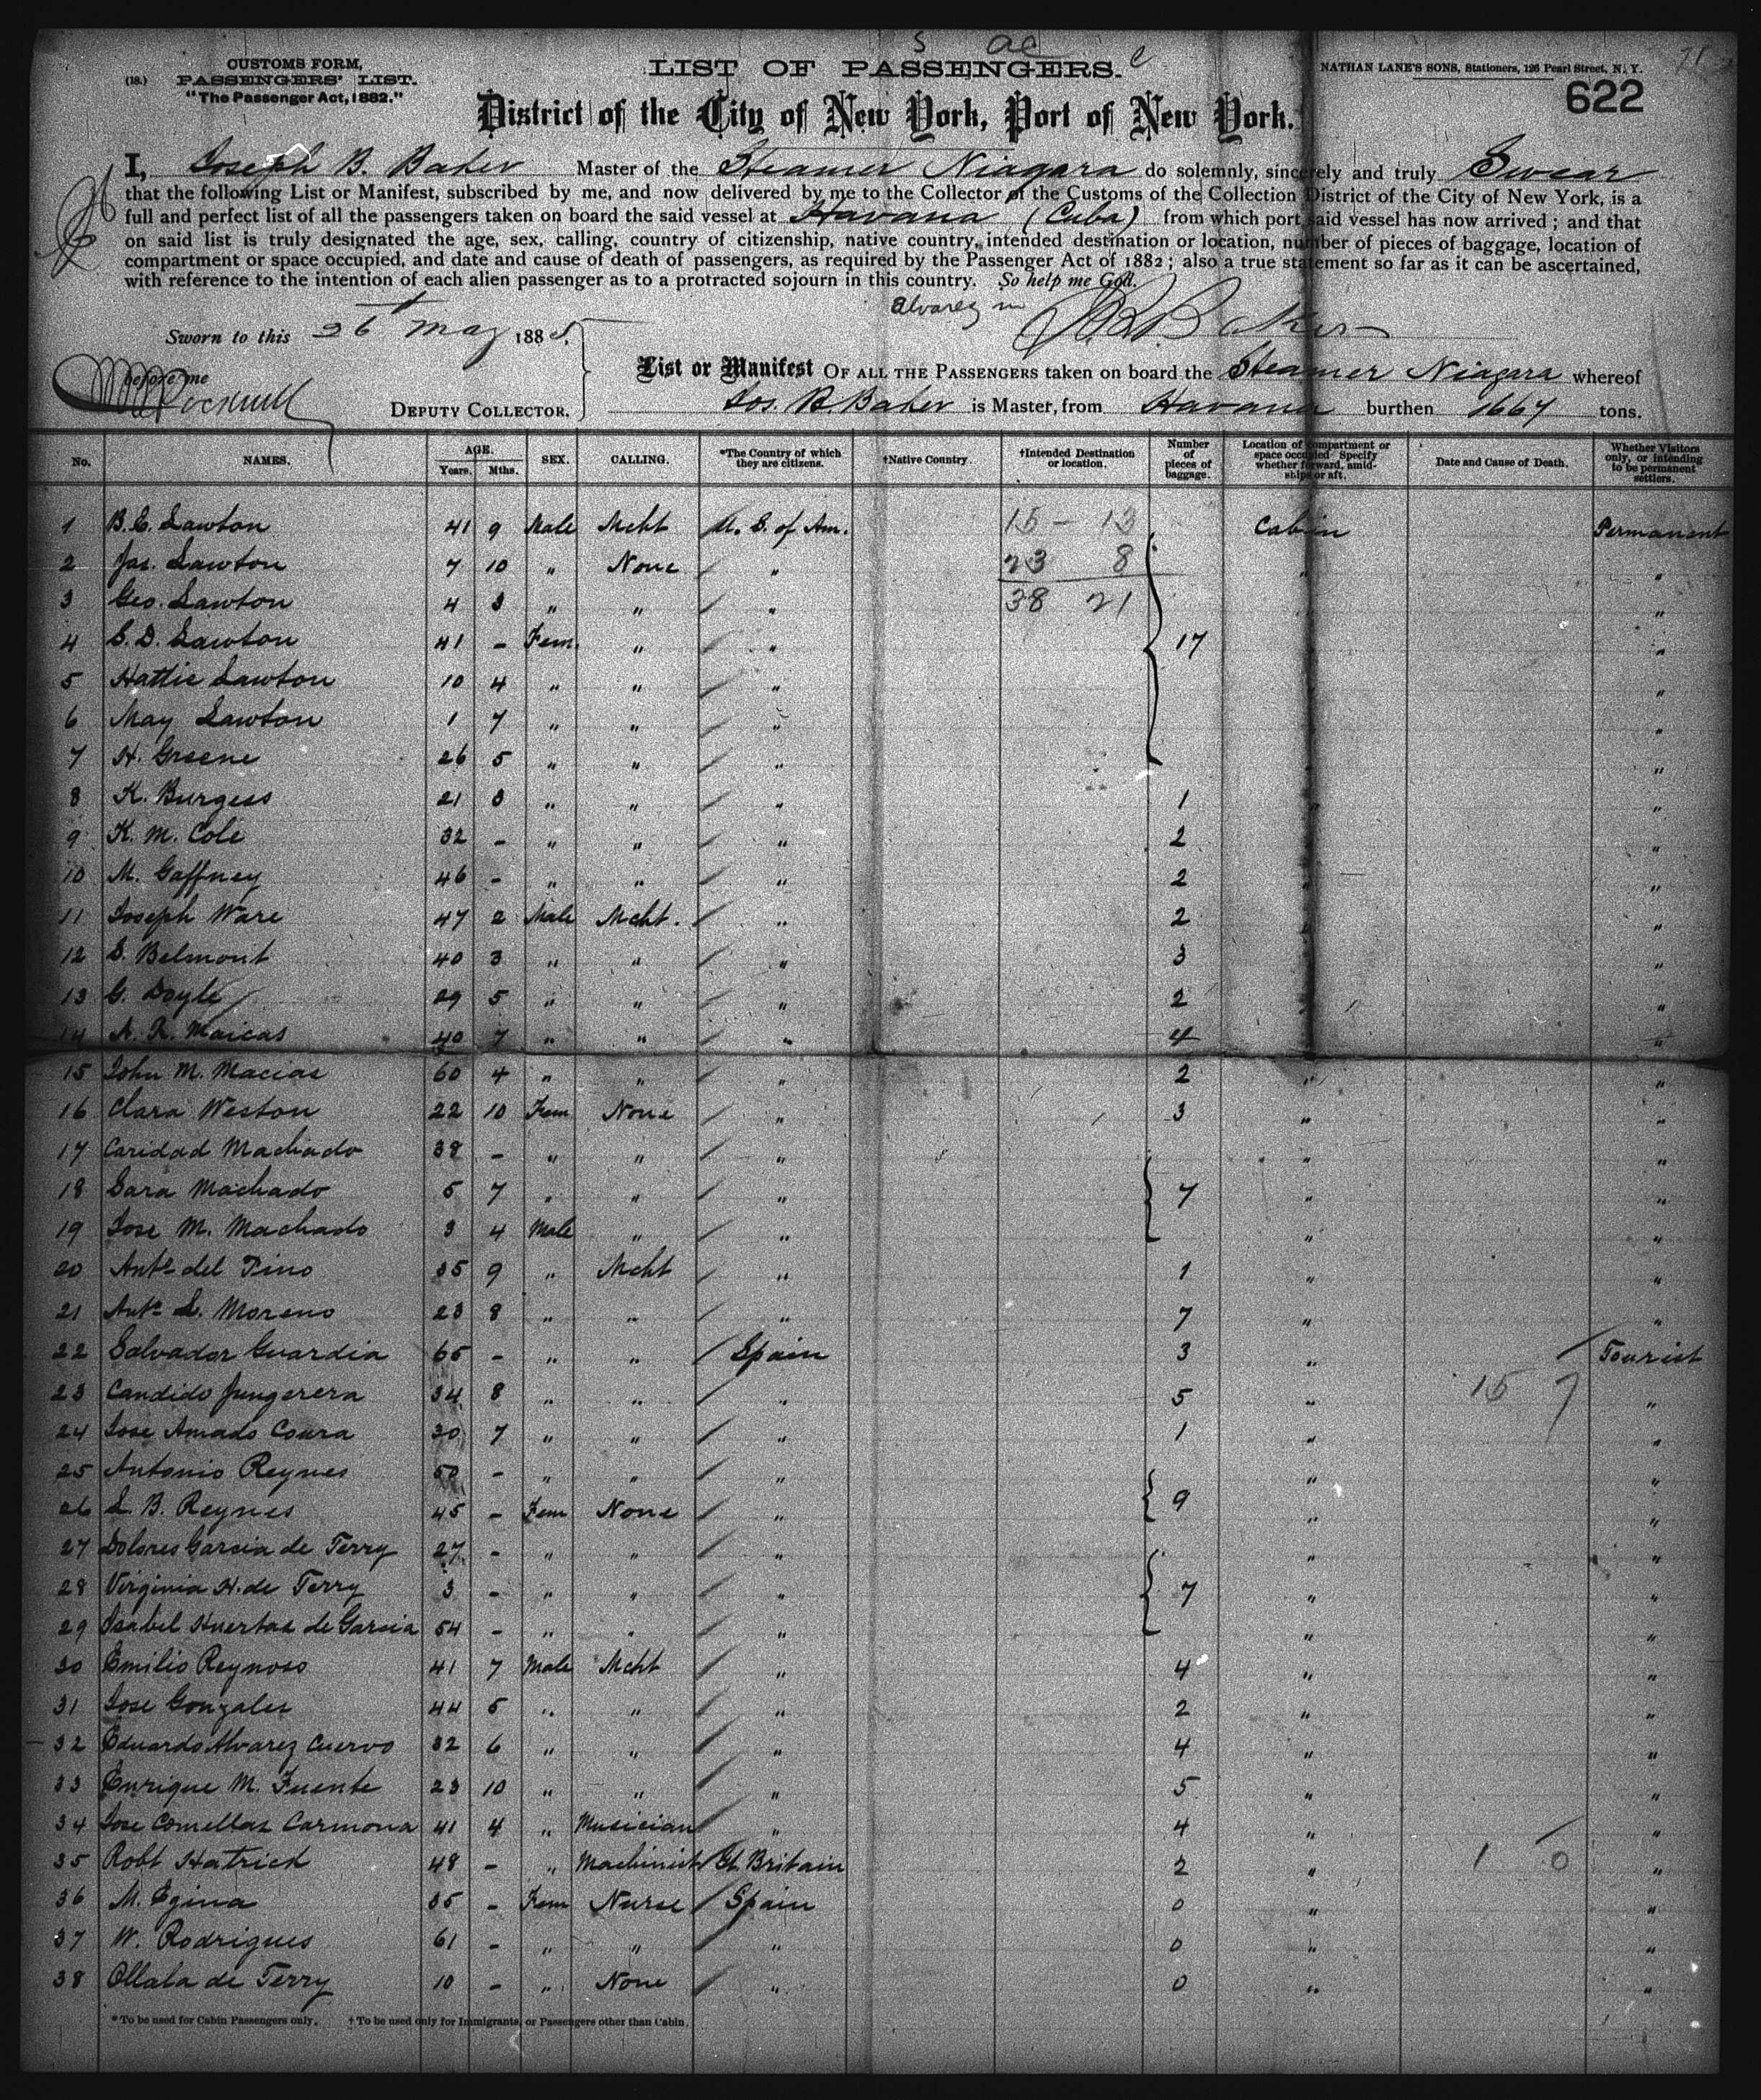 S ac e
CUSTOMS FORM,
(18.) PASSENGERS' LIST.
"The Passenger Act, 1882."
LIST OF PASSENGERS.
NATHAN LANE'S SONS, Stationers, 126 Pearl Street, N. Y.
622
District of the City of New York, Port of New York.
I, Joseph B. Baker Master of the Steamer Niagara do solemnly, sincerely and truly Swear
that the following List or Manifest, subscribed by me, and now delivered by me to the Collector of the Customs of the Collection District of the City of New York, is a
full and perfect list of all the passengers taken on board the said vessel at Havana (Cuba) from which port said vessel has now arrived; and that
on said list is truly designated the age, sex, calling, country of citizenship, native country, intended destination or location, number of pieces of baggage, location of
compartment or space occupied, and date and cause of death of passengers, as required by the Passenger Act of 1882; also a true statement so far as it can be ascertained,
with reference to the intention of each alien passenger as to a protracted sojourn in this country. So help me God.
Alvarez m
Sworn to this 26 May 1885.
before me
DEPUTY COLLECTOR.
List or Manifest OF ALL THE PASSENGERS taken on board the Steamer Niagara whereof
Jos. B. Baker is Master, from Havana burthen 1667 tons.
No. NAMES. AGE. Years. Mths. SEX. CALLING. *The Country of which they are citizens. †Native Country. †Intended Destination or location. Number of pieces of baggage. Location of compartment or space occupied Specify whether forward, amidships or aft. Date and Cause of Death. Whether Visitors only, or intending to be permanent settlers.
1 B. C. Lawton 41 9 Male Mcht U. S. of Am. 15 - 13 Cabin Permanent
2 Jas. Lawton 7 10 " None " 23 8 " "
3 Geo. Lawton 4 3 " " " 38 21 "
4 C. D. Lawton 41 - Fem. " " 17 "
5 Hattie Lawton 10 4 " " " "
6 May Lawton 1 7 " " " "
7 H. Greene 26 5 " " " "
8 K. Burgess 21 3 " " " 1 "
9 K. M. Cole 32 - " " " 2 "
10 M. Gaffney 46 - " " " 2 "
11 Joseph Ware 47 2 Male Mcht. " 2 " "
12 S. Belmont 40 3 " " " 3 "
13 G. Doyle 29 5 " " " 2 "
14 A. R. Maicas 40 7 " " " 4 "
15 John M. Macias 60 4 " " " 2 " "
16 Clara Weston 22 10 Fem None " 3 " "
17 Caridad Machado 38 - " " " " "
18 Sara Machado 5 7 " " " 7 " "
19 Jose M. Machado 3 4 Male " " " "
20 Anto del Pino 35 9 " Mcht " 1 " "
21 Anto L. Moreno 23 8 " " " 7 " "
22 Salvador Guardia 65 - " " Spain 3 " Tourist
23 Candido Jungerera 34 8 " " " 5 " 15 7 "
24 Jose Amado Coura 30 7 " " " 1 " "
25 Antonio Reynes 50 - " " " " "
26 L. B. Reynes 45 - Fem None " 9 " "
27 Dolores Garcia de Terry 27 - " " " " "
28 Virginia H. de Terry 3 - " " " 7 " "
29 Isabel Huertas de Garcia 54 - " " " " "
30 Emilio Reynoso 41 7 Male Mcht " 4 " "
31 Jose Gonzales 44 5 " " " 2 " "
32 Eduardo Alvarez Cuervo 32 6 " " " 4 " "
33 Enrique M. Fuente 23 10 " " " 5 " "
34 Jose Comellas Carmona 41 4 " Musician " 4 " "
35 Robt Hatrick 48 - " Machinist Gt. Britain 2 " 1 0 "
36 M. Egina 35 - Fem Nurse Spain 0 " "
37 W. Rodrigues 61 - " " " 0 " "
38 Ollala de Terry 10 - " None " 0 " "
*To be used for Cabin Passengers only. †To be used only for Immigrants, or Passengers other than Cabin.